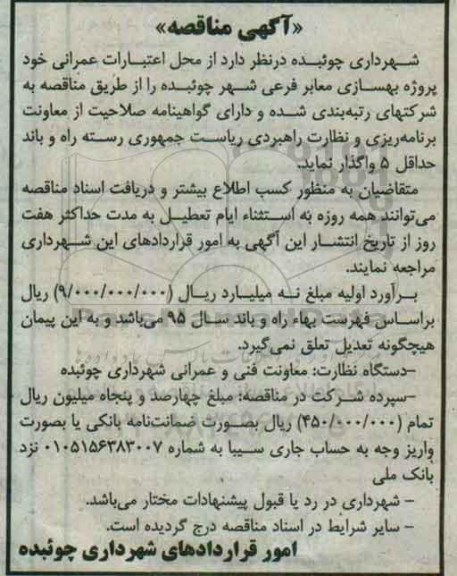 «آگهی مناقصه»
شهرداری چوئبده درنظر دارد از محل اعتبارات عمرانی خود
پروژه بهسازی معابر فرعی شهر چوئبده را از طریق مناقصه به
شرکتهای رتبه‌بندی شده و دارای گواهینامه صلاحیت از معاونت
برنامه‌ریزی و نظارت راهبردی ریاست جمهوری رسته راه و باند
حداقل ۵ واگذار نماید.
متقاضیان به منظور کسب اطلاع بیشتر و دریافت اسناد مناقصه
می‌توانند همه روزه به استثناء ایام تعطیل به مدت حداکثر هفت
روز از تاریخ انتشار این آگهی به امور قراردادهای این شهرداری
مراجعه نمایند.
برآورد اولیه مبلغ نه میلیارد ریال (۹/۰۰۰/۰۰۰/۰۰۰) ریال
براساس فهرست بهاء راه و باند سال ۹۵ می‌باشد و به این پیمان
هیچگونه تعدیل تعلق نمی‌گیرد.
-دستگاه نظارت: معاونت فنی و عمرانی شهرداری چوئبده
-سپرده شرکت در مناقصه: مبلغ چهارصد و پنجاه میلیون ریال
تمام (۴۵۰/۰۰۰/۰۰۰) ریال بصورت ضمانت‌نامه بانکی یا بصورت
واریز وجه به حساب جاری سیبا به شماره ۰۱۰۵۱۵۶۳۸۳۰۰۷ نزد
بانک ملی
- شهرداری در رد یا قبول پیشنهادات مختار می‌باشد.
- سایر شرایط در اسناد مناقصه درج گردیده است.
امور قراردادهای شهرداری چوئبده